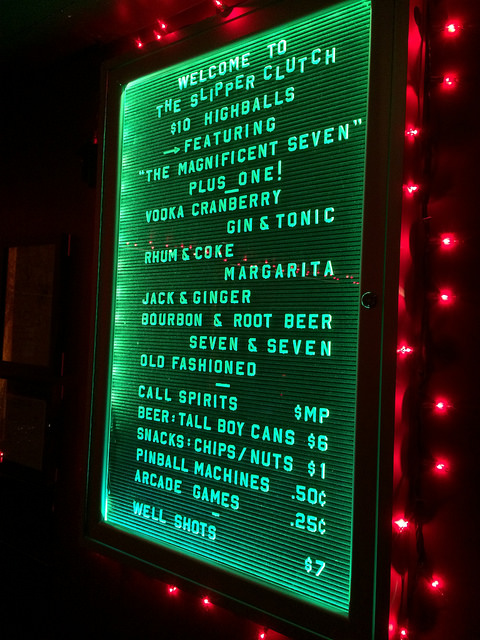 WELCOME TO
THE SLIPPER CLUTCH
$10 HIGHBALLS
→FEATURING
"THE MAGNIFICENT SEVEN"
PLUS_ONE!
VODKA CRANBERRY
GIN & TONIC
RHUM & COKE
MARGARITA
JACK & GINGER
BOURBON & ROOT BEER
SEVEN & SEVEN
OLD FASHIONED
—
CALL SPIRITS $MP
BEER: TALL BOY CANS $6
SNACKS: CHIPS/NUTS $1
PINBALL MACHINES .50¢
ARCADE GAMES .25¢
-
WELL SHOTS $7